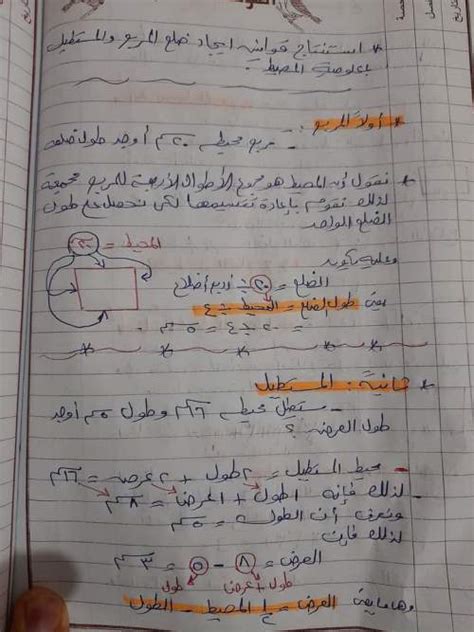 * استنتاج قوانين ايجاد ضلع المربع والمستطيل
بمعلومية المحيط.
* أولاً المربع :-
مربع محيطه ٢٠سم أوجد طول ضلعه
* نقول أن المحيط هو مجموع الأطوال الأربعة للمربع مجمعة
لذلك نقوم بإعادة تقسيمها لكي نحصل على طول
الضلع الواحد
المحيط = ٢٠
وعليه يكون
الضلع = ٢٠ ÷ أربع أضلاع
يعني طول الضلع = المحيط ÷ ٤
= ٢٠ ÷ ٤ = ٥ سم
* ثانية: المستطيل
- مستطيل محيطه ١٦سم وطوله ٥سم أوجد
طول العرض ؟
- محيط المستطيل = ٢ طول + ٢ عرض = ١٦سم
- لذلك فإنه ١ طول + ١ عرض = ٨سم
ونعرف أن الطول = ٥سم
لذلك فإن
العرض = ٨ - ٥ = ٣سم
طول + عرض طول
وهذا يعني العرض = ½ المحيط - الطول